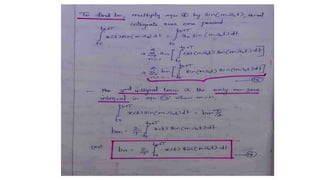 To find bn, multiply eqn ① by sin(mω₀t), and
integrate over one period
t₀+T
∫ x(t) sin(mω₀t) dt = ∫ a₀ sin(mω₀t) dt
t₀
+ Σ an [∫ cos(nω₀t) sin(mω₀t) dt]
+ Σ bn [∫ sin(nω₀t) sin(mω₀t) dt]
- the integral term is the only non-zero
integral in eqn when m=n
∫ x(t) sin(mω₀t) dt = bm T/2
bm = 2/T ∫ x(t) sin(mω₀t) dt
bn = 2/T ∫ x(t) sin(nω₀t) dt